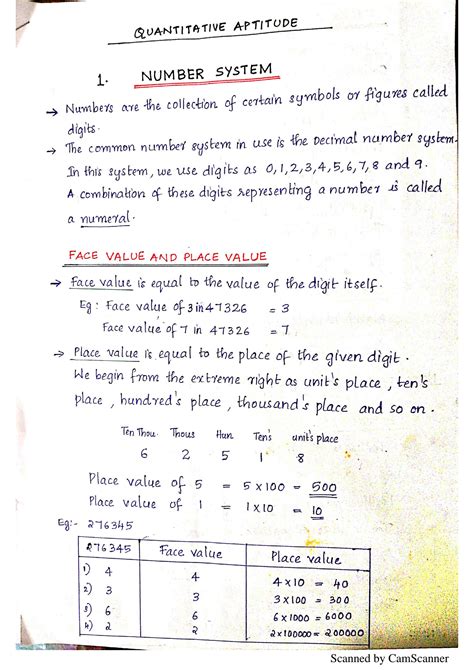 QUANTITATIVE APTITUDE
1. NUMBER SYSTEM
→ Numbers are the collection of certain symbols or figures called
digits.
→ The common number system in use is the Decimal number system.
In this system, we use digits as 0,1,2,3,4,5,6,7,8 and 9.
A combination of these digits representing a number is called
a numeral.
FACE VALUE AND PLACE VALUE
→ Face value is equal to the value of the digit itself.
Eg: Face value of 3 in 47326 = 3
Face value of 7 in 47326 = 7
→ Place value is equal to the place of the given digit.
We begin from the extreme right as unit's place, ten's
place, hundred's place, thousand's place and so on.
Ten Thou. Thous Hun. Ten's unit's place
6 2 5 1 8
Place value of 5 = 5x100 = 500
Place value of 1 = 1x10 = 10
Eg:- 276345
276345 Face value Place value
1) 4 4 4x10 = 40
2) 3 3 3x100 = 300
3) 6 6 6x1000 = 6000
4) 2 2 2x100000 = 200000
Scanned by CamScanner